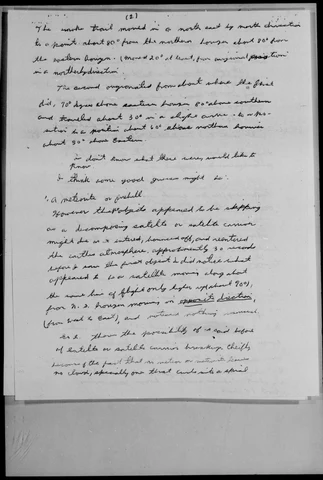 (2)
The smoke front moved in a north east by north direction
to a point about 80° from the northern horizon about 90° from
the eastern horizon. (moved 20° at least, from original position
in a northerly direction.
The second originated from about where the first
did, 70° degrees above eastern horizon 80° above southern
and traveled about 30° in a slight curve
position about 60° above northern horizon
about 80° above Eastern.
I don't know what these were, would like to
know
I think some good guesses might be:
A meteorite or fireball.
However the objects appeared to be skipping
as a decomposing satelite or satelite carrier
might do as it entered, bounced off, and reentered
the earths atmosphere. approximently 30 seconds
before I saw the first object I did notice what
appeared to be a satelite moving along about
the same line of flight only higher up about 90°),
from N.E. horizon moving in opposite direction,
(from West to East), and notices nothing unusual
2. then the possibility of
of satelite or satelite carrier breaking
because of the fact that no meteor or meteorite leaves
no cloud, especially one that curls into a spiral